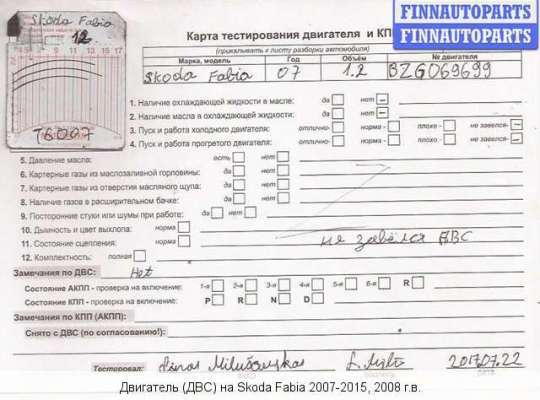 Skoda Fabia
12
T6007
FINNAUTOPARTS
FINNAUTOPARTS
Карта тестирования двигателя и КП
(прикалывать к листу разборки автомобиля)
Марка, модель Год Объём № двигателя
Skoda Fabia 07 1.2 BZG069699
1. Наличие охлаждающей жидкости в масле: да нет
2. Наличие масла в охлаждающей жидкости: да нет
3. Пуск и работа холодного двигателя: отлично- норма - плохо - не завелся-
4. Пуск и работа прогретого двигателя: отлично- норма - плохо - не завелся-
5. Давление масла: есть нет
6. Картерные газы из маслозаливной горловины: да нет
7. Картерные газы из отверстия масляного щупа: да нет
8. Наличие газов в расширительном бачке: да нет
9. Посторонние стуки или шумы при работе: да нет
10. Дымность и цвет выхлопа: норма
11. Состояние сцепления: норма
не завёлся ДВС
12. Комплектность: полная
Замечания по ДВС: Нет
Состояние АКПП - проверка на включение: 1-я 2-я 3-я 4-я 5-я 6-я R
Состояние КПП - проверка на включение: P R N D
Замечания по КПП (АКПП):
Снято с ДВС (по согласованию!):
Тестировал: 2017.07.22
Двигатель (ДВС) на Skoda Fabia 2007-2015, 2008 г.в.